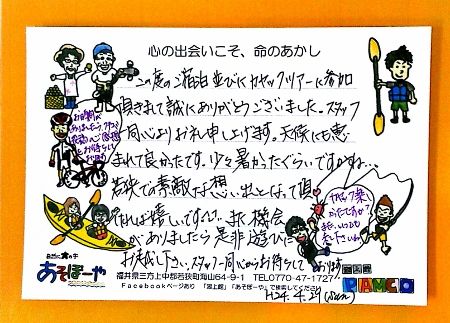 心の出会いこそ、命のあかし
この度のご宿泊並びにカヤックツアーに参加
頂きまして誠にありがとうございました。スタッフ
一同心よりお礼申し上げます。天候にも恵
まれて良かったです。少々暑かったぐらいですかね…
若狭での素敵な想い出となって頂
ければ嬉しいです。また機会
がありましたら是非遊びに
お越し下さい。スタッフ一同心からお待ちして
おります
カヤック楽し
かったですか?
また、いつでも
来て下さいね
自然に食の子
あそぼーや
PAMCO
福井県三方上中郡若狭町海山64-9-1 TEL0770-47-1727
Facebookページあり 「湖上館」「あそぼーや」で検索してください
H24.4.29 (sun)